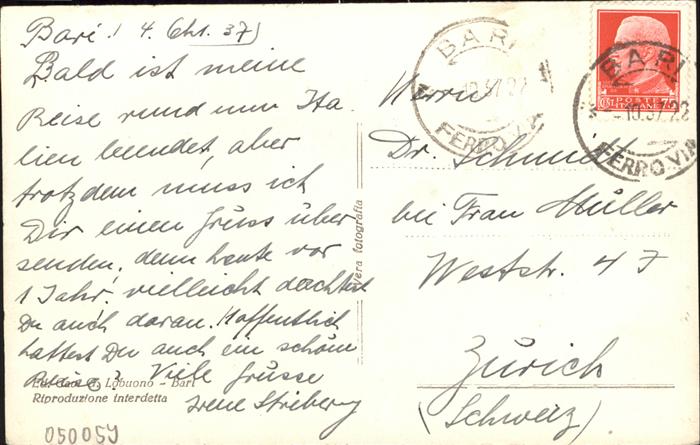 Bari! 4. Okt. 37)
Bald ist meine
Reise rund um Ita
lien beendet, aber
trotzdem muss ich
Dir einen Gruss über
senden, denn heute vor
1 Jahr! vielleicht dachtest
Du auch daran. Hoffentlich
hattest Du auch ein schöne
Reise? Viele Grüsse
Irene
Ed. Lobuono - Bari
Riproduzione interdetta
050059
Vera fotografia
BARI
10.37.22
FERROVIA
POSTE
ITALIANE
75
BARI
10.37.22
FERROVIA
Herrn
Dr. Schmid
bei Frau Müller
Weststr. 47
Zürich
(Schweiz)